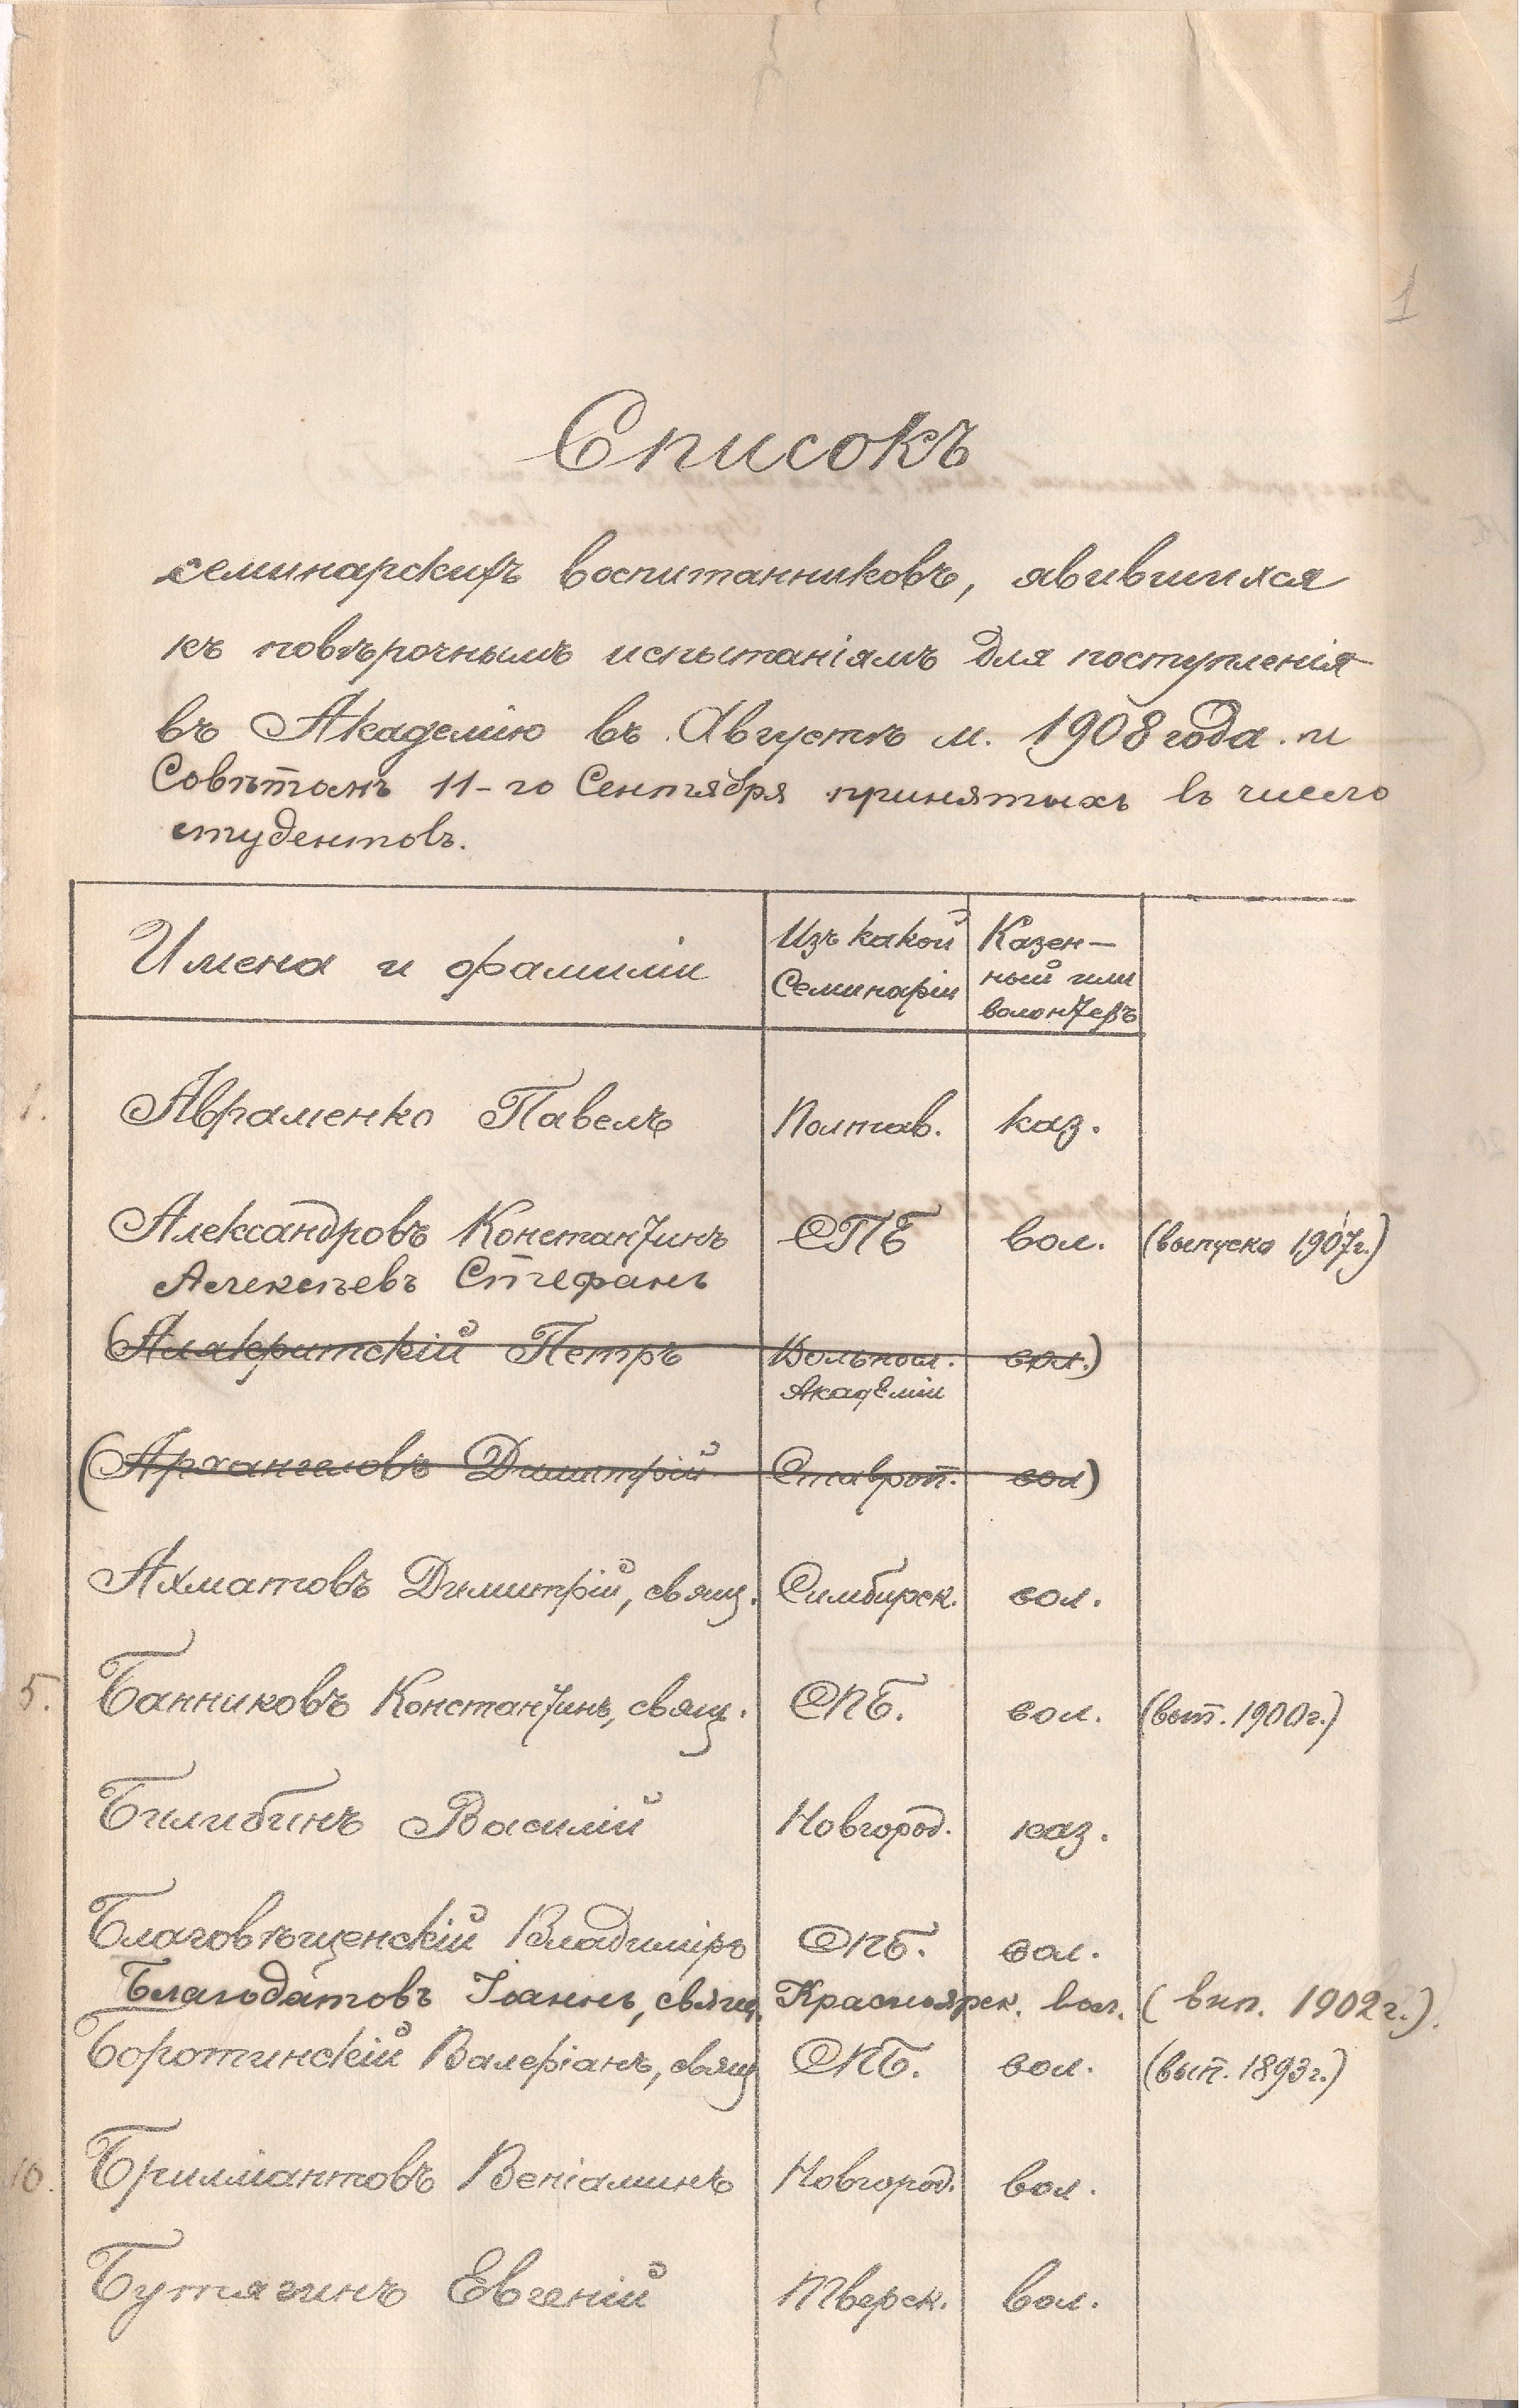 1
Списокъ
семинарскихъ воспитанниковъ, явившихся
къ повѣрочнымъ испытаніямъ для поступленія
въ Академію въ Августѣ м. 1908 года. и
Совѣтомъ 11-го Сентября принятыхъ въ число
студентовъ.
Имена и фамиліи
Изъ какой Семинаріи
Казен-ный или волонтеръ
1. Авраменко Павелъ Полтав. каз.
Александровъ Константинъ СПБ вол. (выпуска 1907г.)
Алексѣевъ Стефанъ
(Алякритскій Петръ Вольносл. Академіи вол.)
(Архангеловъ Димитрій Ставроп. вол)
Ахматовъ Димитрій, свящ. Симбирск. вол.
5. Банниковъ Константинъ, свящ. СПБ. вол. (вып. 1900г.)
Билибинъ Василій Новгород. каз.
Благовѣщенскій Владиміръ СПБ. вол.
Благодатовъ Іоаннъ, свящ. Красноярск. вол. (вып. 1902г.).
Боротинскій Валеріанъ, свящ СПБ. вол. (вып. 1893г.)
10. Бриллиантовъ Веніаминъ Новгород. вол.
Бутягинъ Евгеній Тверск. вол.